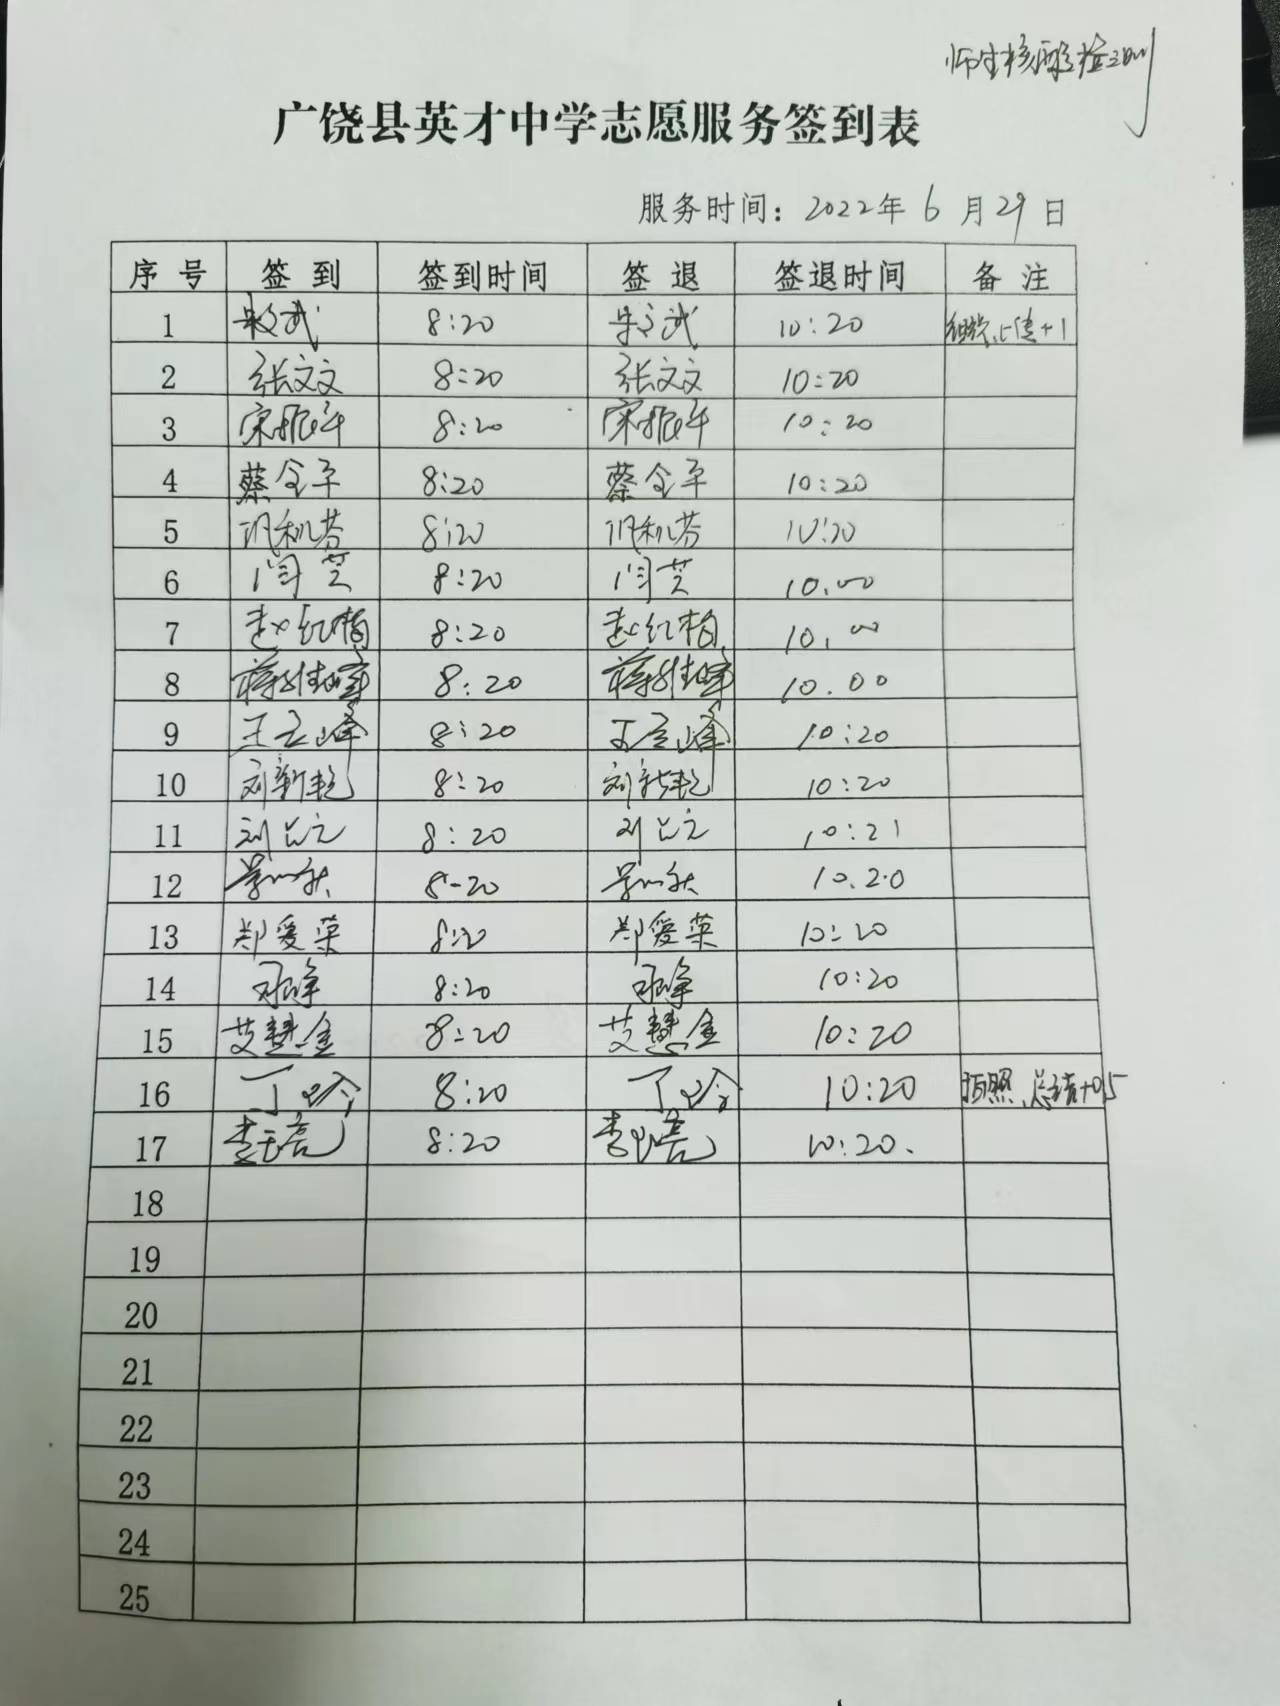 师生核酸检测
广饶县英才中学志愿服务签到表
服务时间：2022年 6 月 29 日
序 号 签 到 签到时间 签 退 签退时间 备 注
1 8:20 10:20 组织、上传+1
2 张文文 8:20 张文文 10:20
3 宋振军 8:20 宋振军 10:20
4 蔡全平 8:20 蔡全平 10:20
5 8:20 10:20
6 闫芝 8:20 闫芝 10.00
7 赵红梅 8:20 赵红梅 10.00
8 蒋维峰 8:20 蒋维峰 10.00
9 8:20 10:20
10 刘新艳 8:20 刘新艳 10:20
11 8:20 10:21
12 8-20 10.20
13 郑爱菊 8:20 郑爱菊 10:20
14 8:20 10:20
15 艾慧金 8:20 艾慧金 10:20
16 丁玲 8:20 丁玲 10:20 拍照、总结+0.5
17 8:20 10:20、
18
19
20
21
22
23
24
25